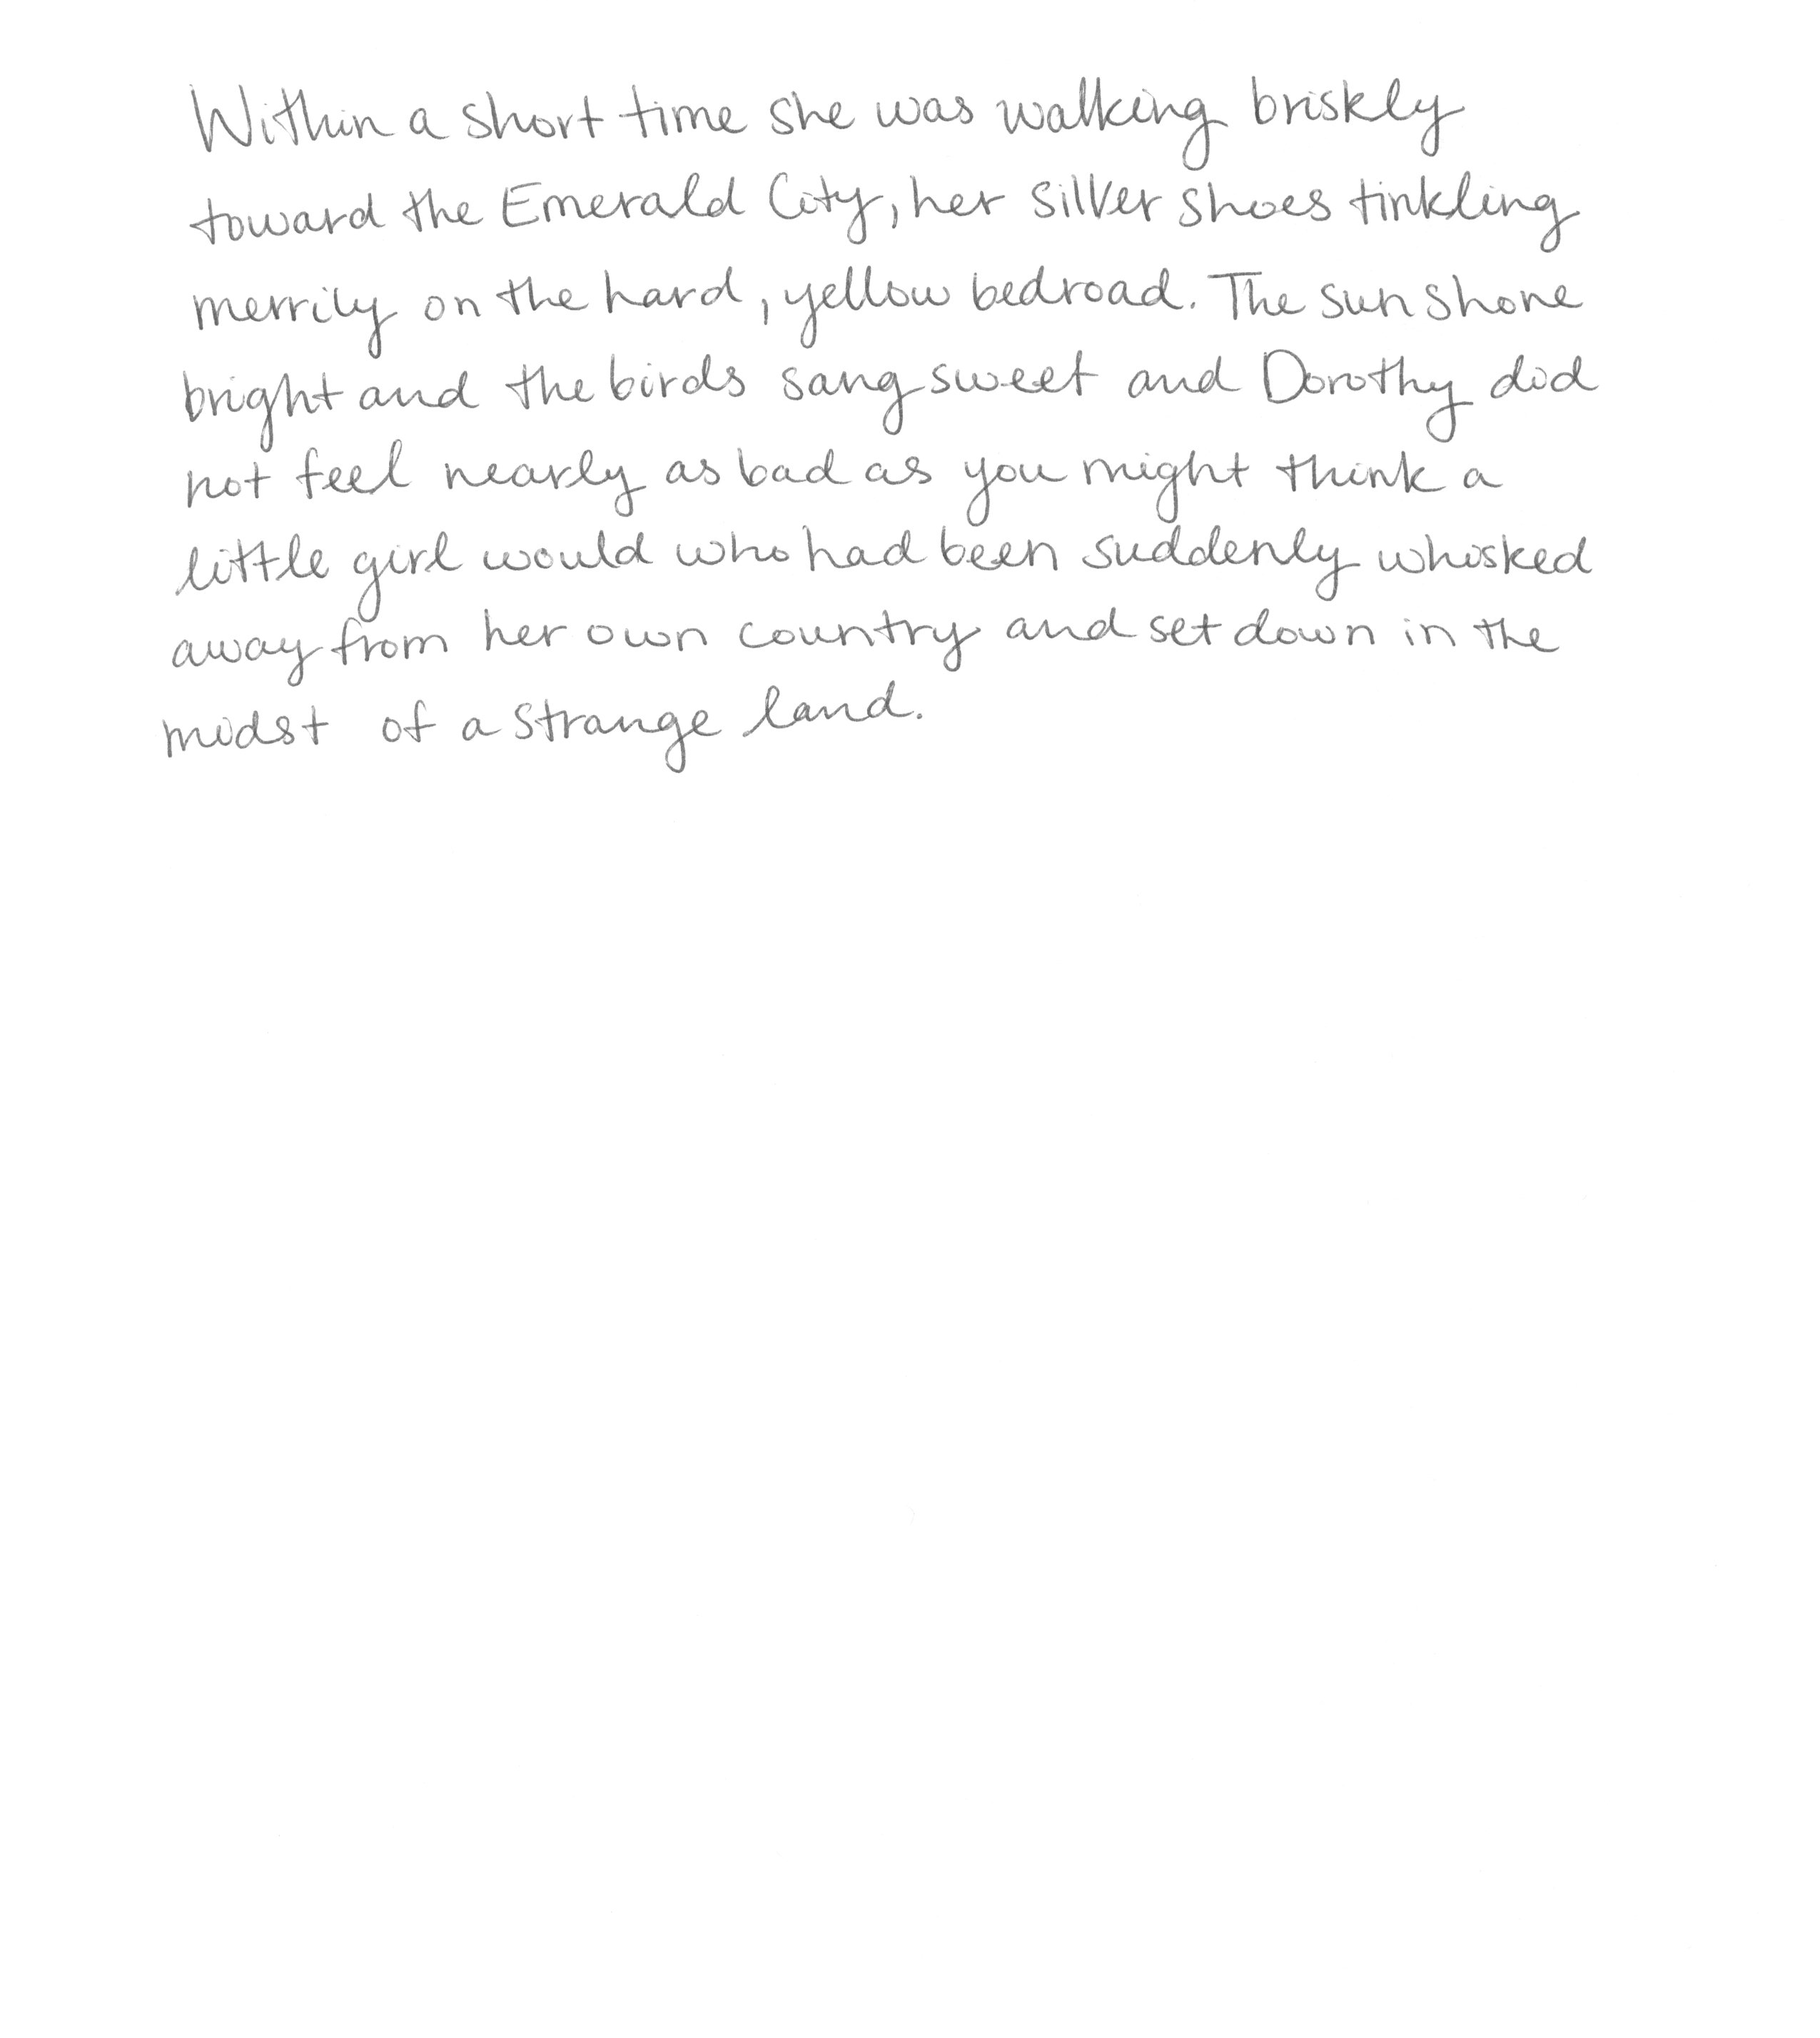 Within a short time she was walking briskly
toward the Emerald City, her silver shoes tinkling
merrily on the hard, yellow bedroad. The sun shone
bright and the birds sang sweet and Dorothy did
not feel nearly as bad as you might think a
little girl would who had been suddenly whisked
away from her own country and set down in the
midst of a strange land.